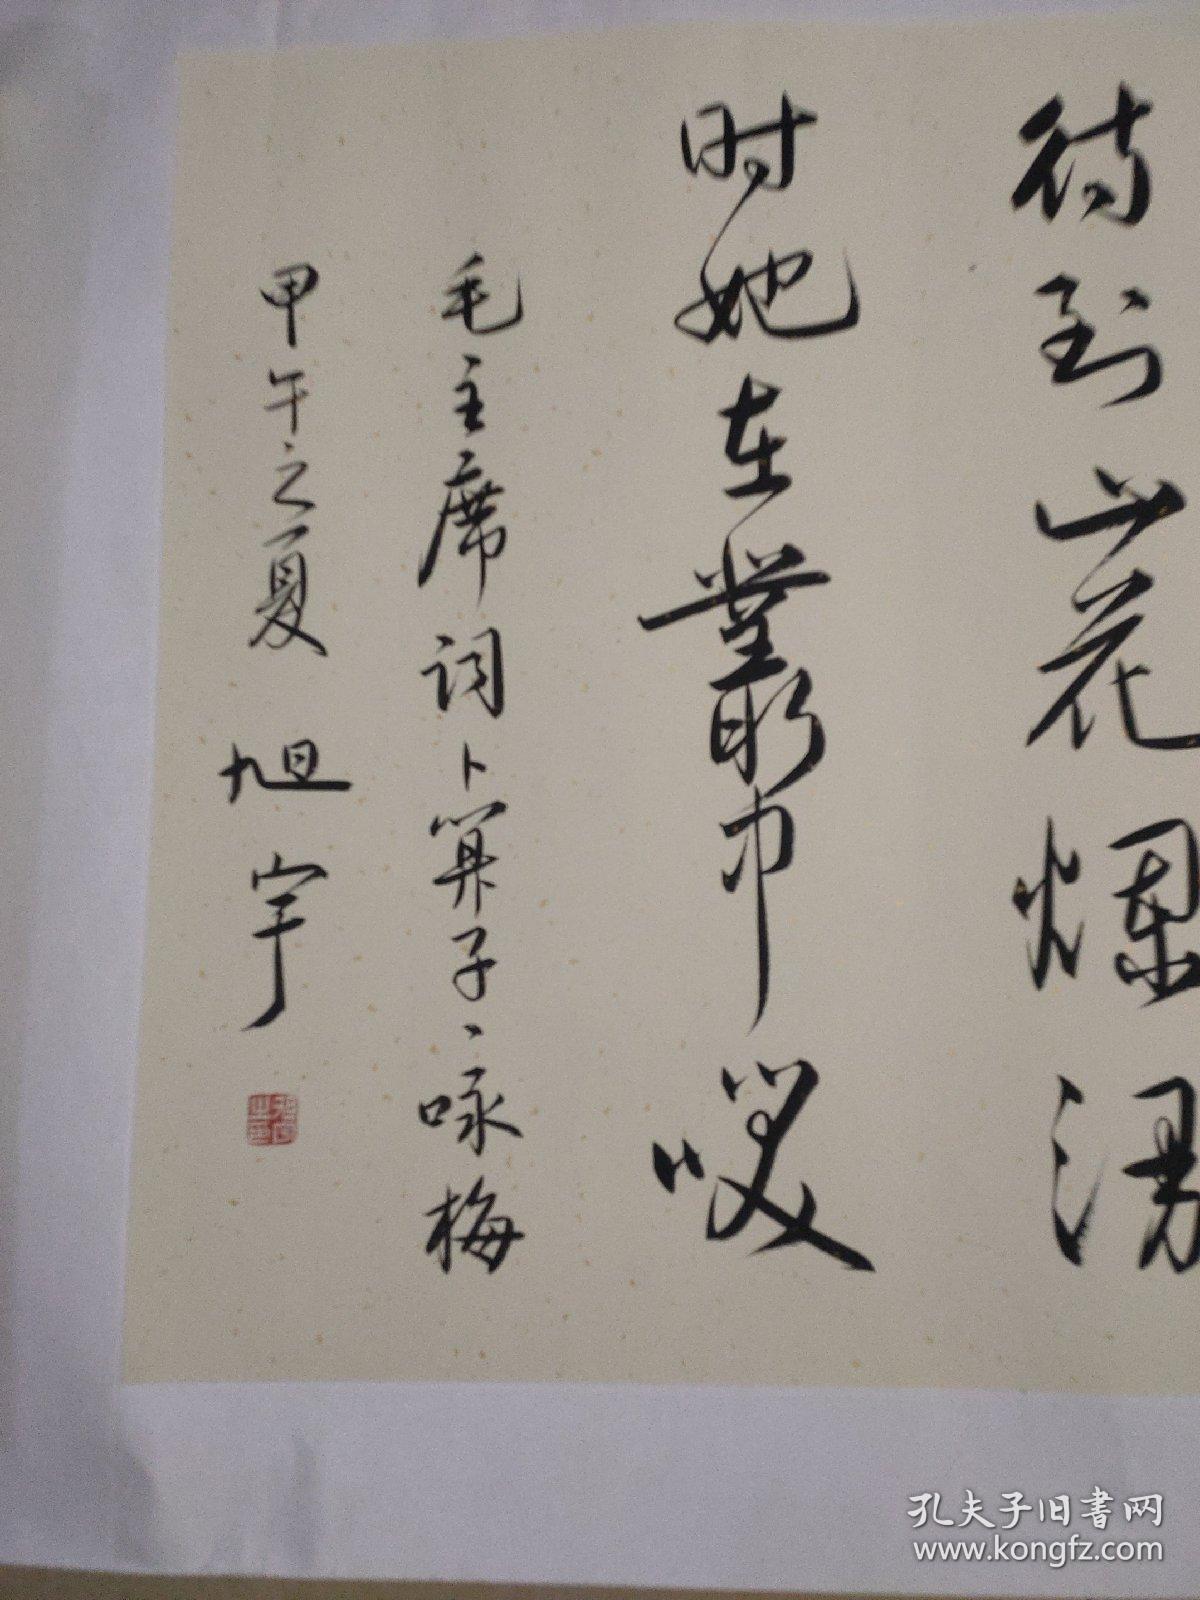 待到山花烂漫
时她在叢中咲
毛主席词卜算子、咏梅
甲午之夏 旭宇
孔夫子旧书网
www.kongfz.com